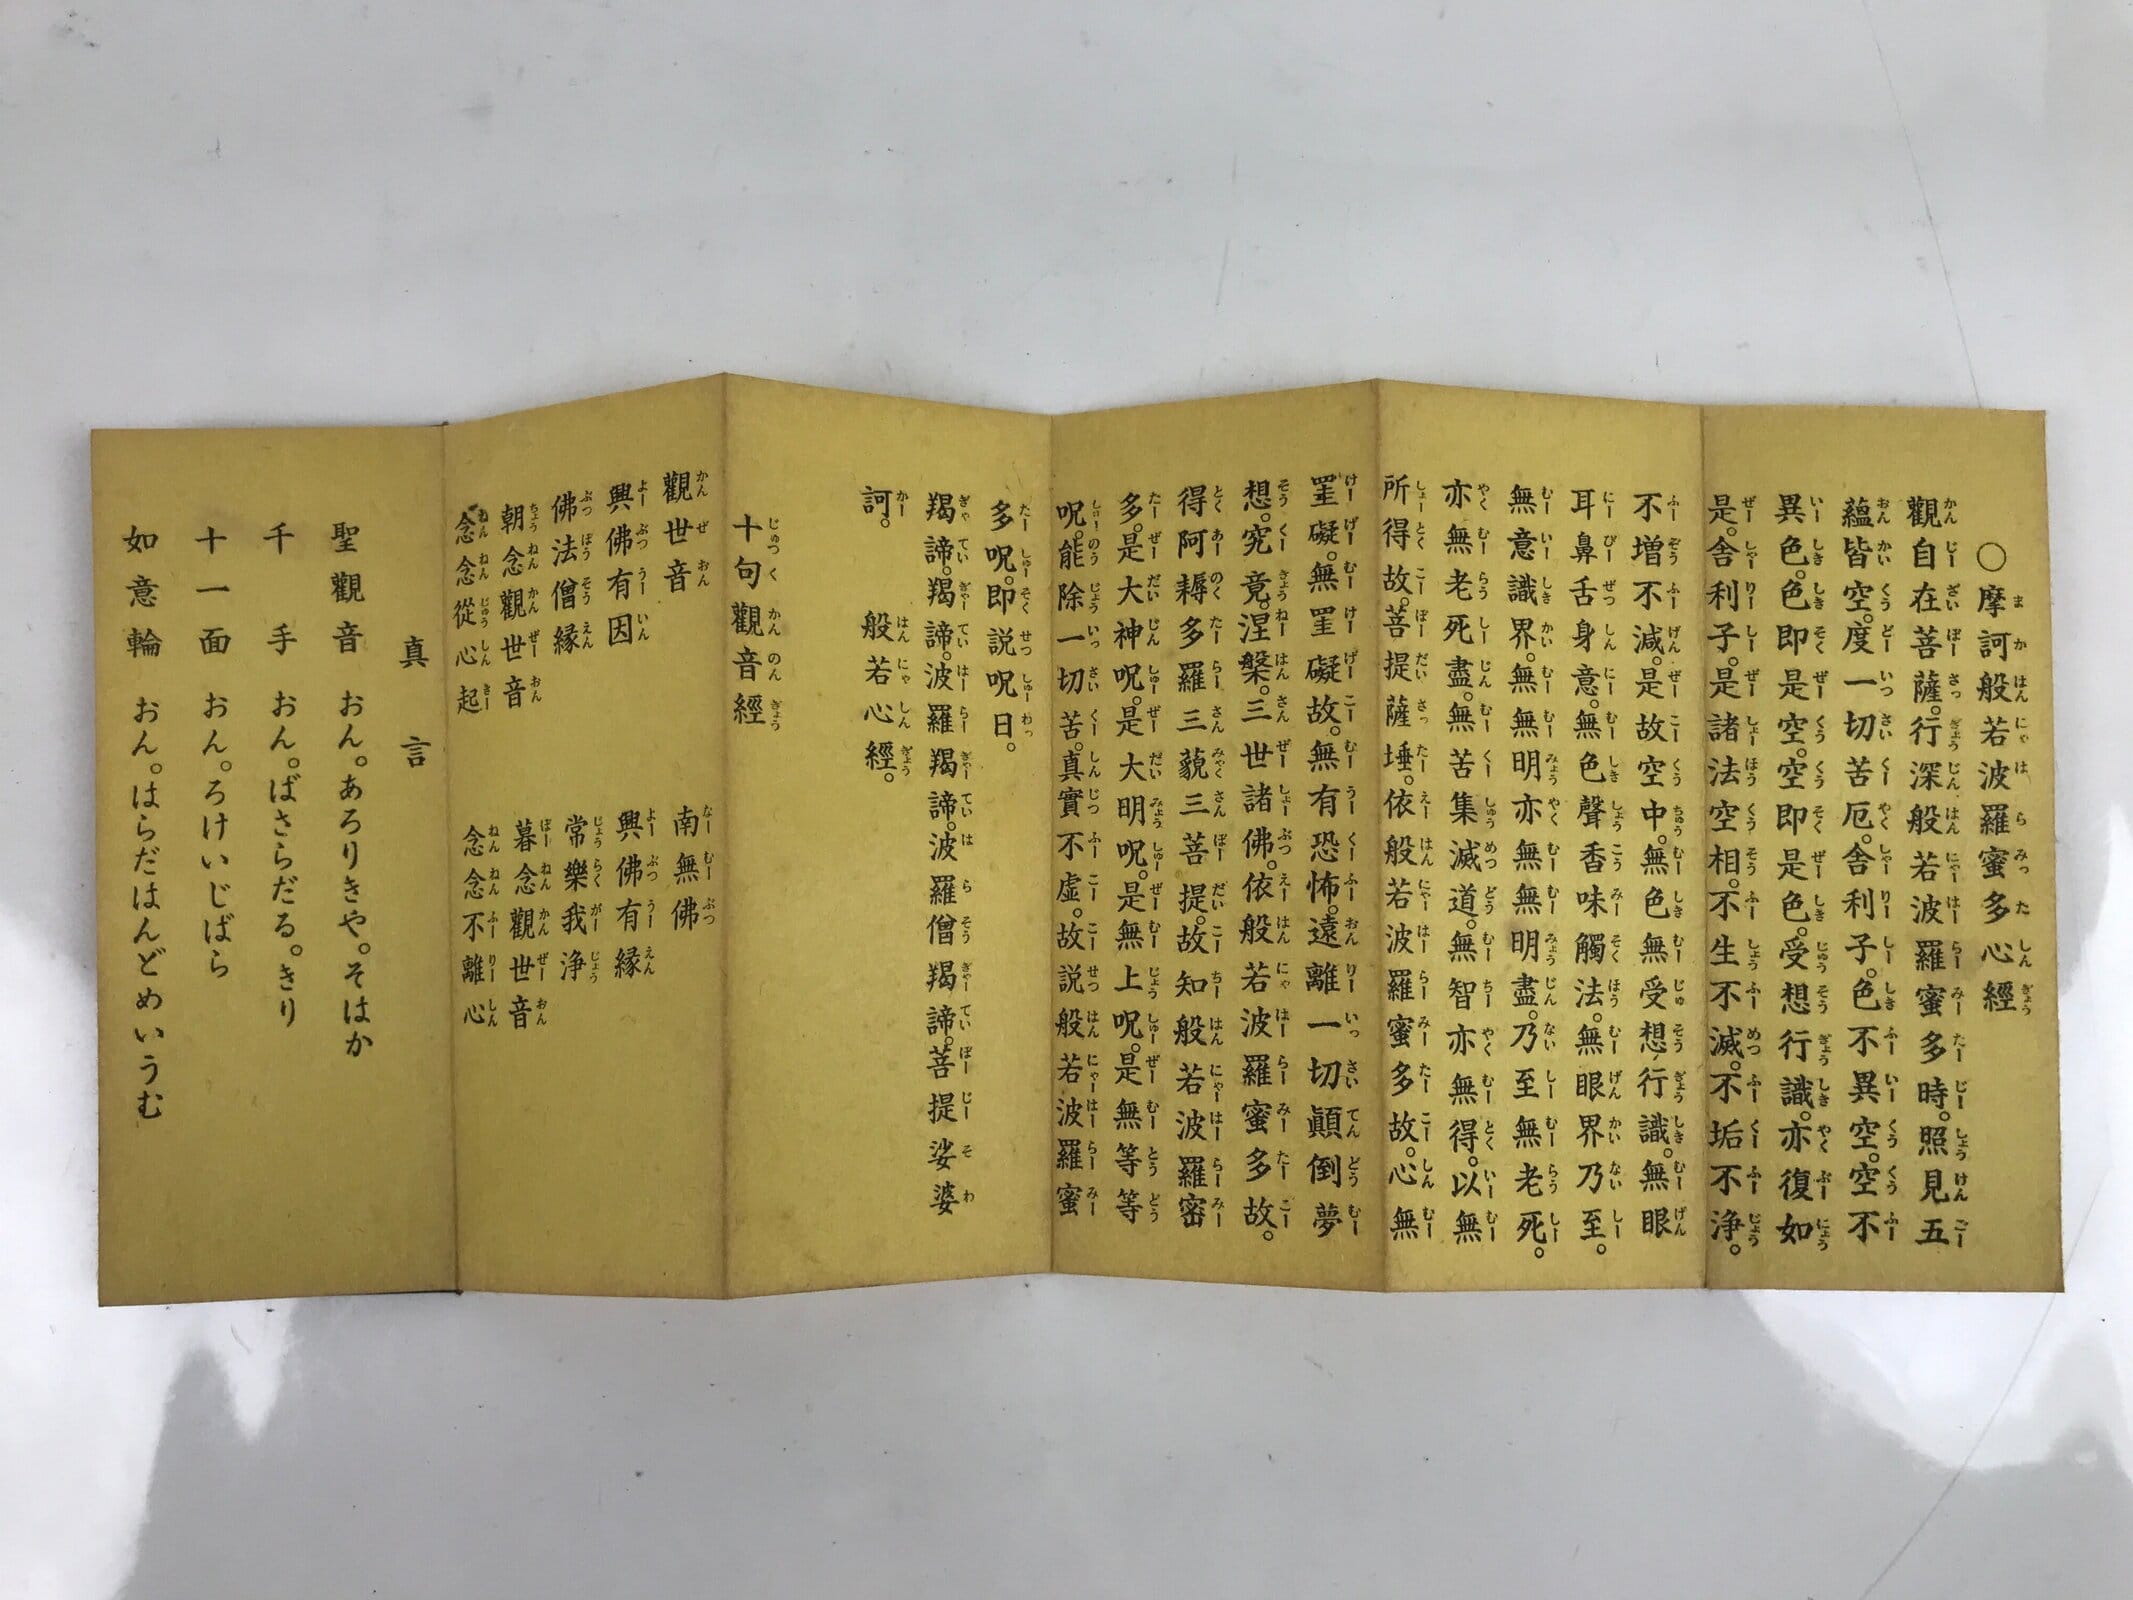 ○摩訶般若波羅蜜多心經
觀自在菩薩。行深般若波羅蜜多時。照見五
蘊皆空。度一切苦厄。舍利子。色不異空。空不
異色。色即是空。空即是色。受想行識。亦復如
是。舍利子。是諸法空相。不生不滅。不垢不浄。
不増不減。是故空中。無色無受想行識。無眼
耳鼻舌身意。無色聲香味觸法。無眼界乃至。
無意識界。無無明亦無無明盡。乃至無老死。
亦無老死盡。無苦集滅道。無智亦無得。以無
所得故。菩提薩埵。依般若波羅蜜多故。心無
罣礙。無罣礙故。無有恐怖。遠離一切顚倒夢
想。究竟。涅槃。三世諸佛。依般若波羅蜜多故。
得阿耨多羅三藐三菩提。故知般若波羅密
多。是大神呪。是大明呪。是無上呪。是無等等
呪。能除一切苦。真實不虚。故説般若波羅蜜
多呪。即説呪曰。
羯諦。羯諦。波羅羯諦。波羅僧羯諦。菩提娑婆
訶。 般若心經。
十句觀音經
觀世音 南無佛
興佛有因 興佛有縁
佛法僧縁 常樂我浄
朝念觀世音 暮念觀世音
念念從心起 念念不離心
真言
聖觀音 おん。あろりきや。そはか
千手 おん。ばさらだる。きり
十一面 おん。ろけいじばら
如意輪 おん。はらだはんどめいうむ